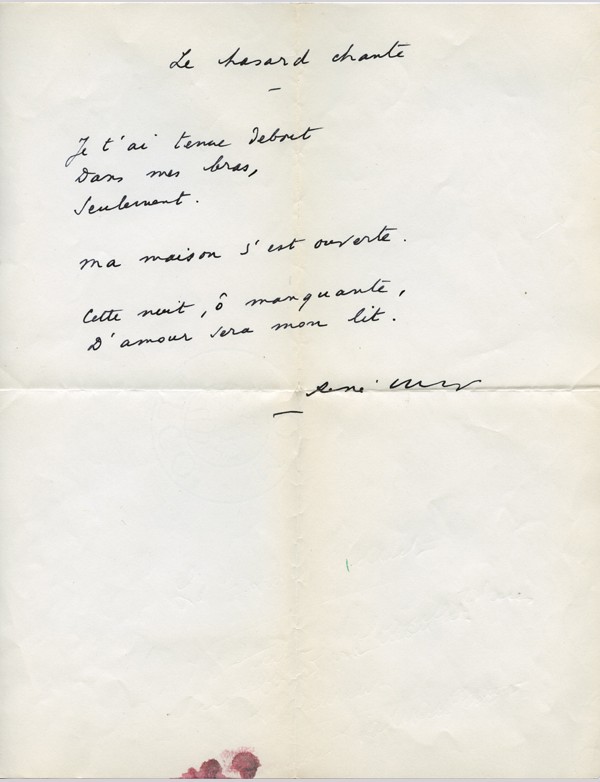 Le hasard chante
Je t'ai tenue debout
Dans mes bras,
Seulement.
Ma maison s'est ouverte.
Cette nuit, ô manquante,
D'amour sera mon lit.
René Char